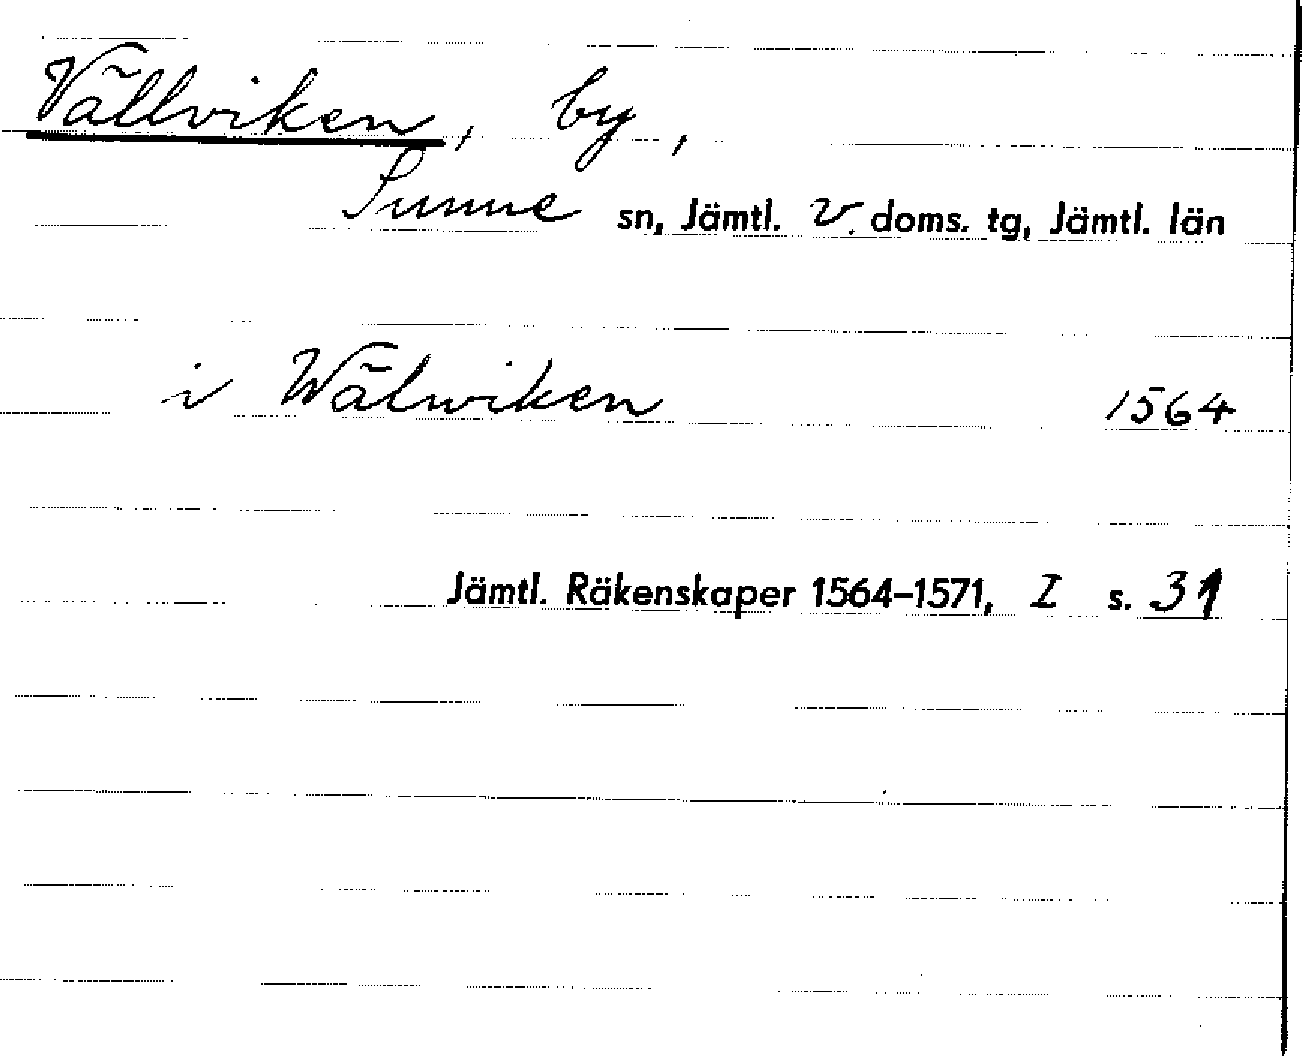 Vällviken, by,
Sunne sn, Jämtl. V. doms. tg, Jämtl. län
i Wälwiken 1564
Jämtl. Räkenskaper 1564–1571, I s. 31